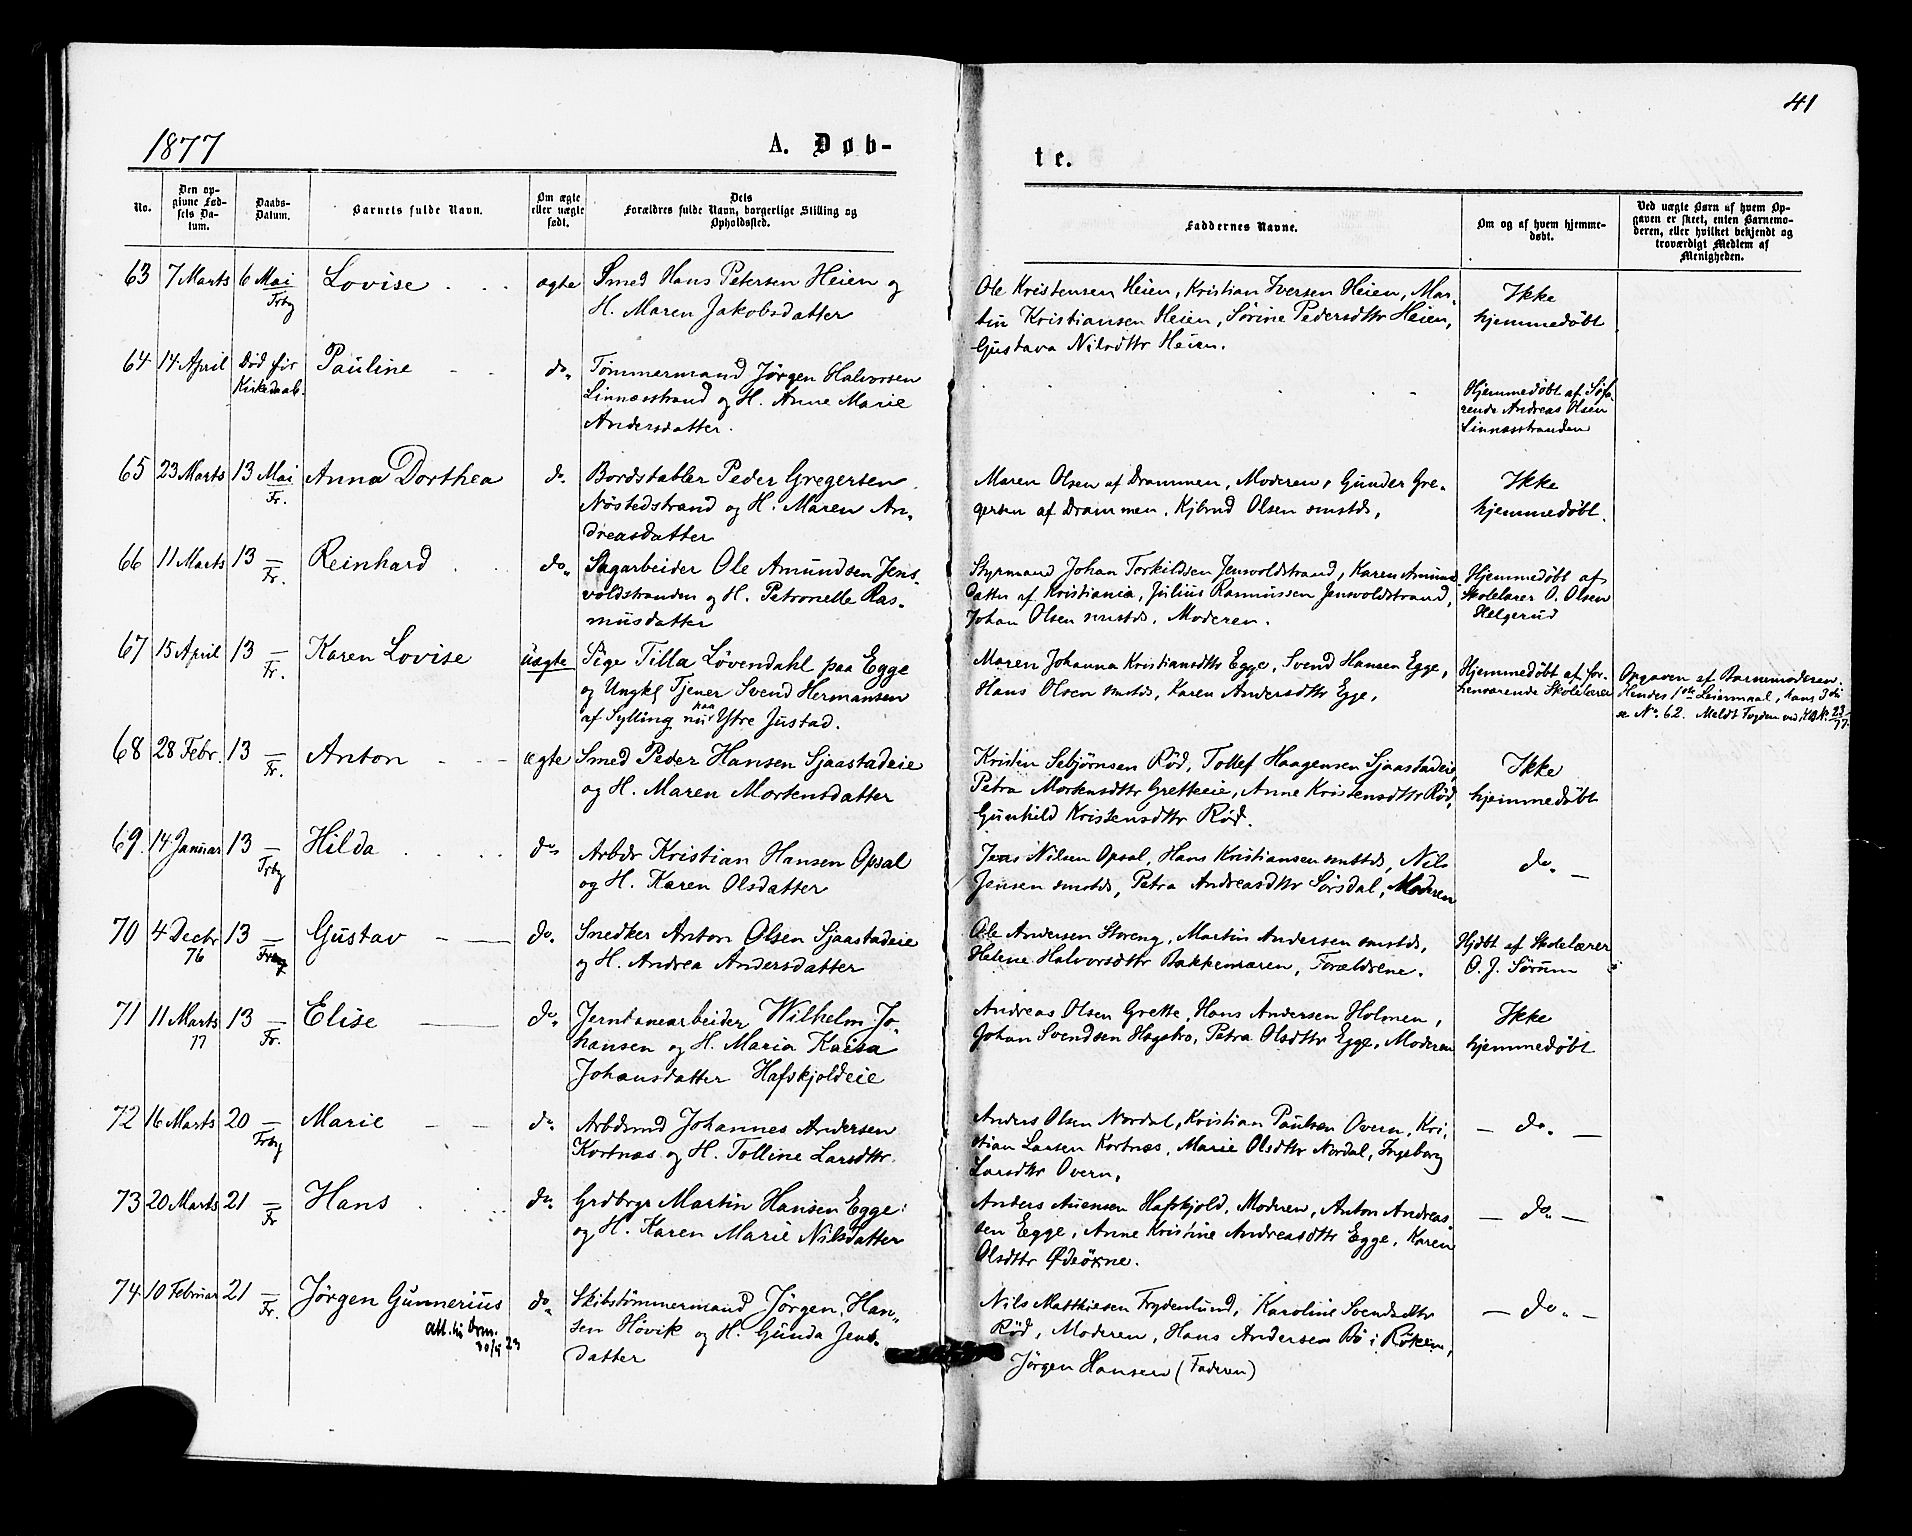 41
1877
A. Døb-
te.
No.
Den op-
givne Fød-
sels Da-
tum.
Daabs-
Datum.
Barnets fulde Navn.
Om ægte
eller uægte
født.
Dets
Forældres fulde Navn, borgerlige Stilling og
Opholdssted.
Faddernes Navne.
Om og af hvem hjemme-
døbt.
Ved uægte Børn af hvem Op-
gaven er skeet, enten Barnemo-
deren, eller hvilket bekjendt og
troværdigt Medlem af
Menigheden.
63 7 Marts 6 Mai Lovise ægte Smed Hans Petersen Heien og
Frby H. Maren Jakobsdatter
Ole Kristensen Heien, Kristian Iversen Heien, Mar-
tin Kristiansen Heien, Sørine Pedersdttr Heien,
Gustava Nilsdttr Heien.
Ikke
hjemmedøbt
64 14 April Død før Pauline do. Tømmermand Jørgen Halvorsen
Kirkedaab. Linnæsstrand og H. Anne Marie
Andersdatter.
Hjemmedøbt af Søfa-
rende Andreas Olsen
Linnæsstranden
65 23 Marts 13 Mai Anna Dorthea do. Bordstabler Peder Gregersen
Fr. Nøstedstrand og H. Maren An-
dreasdatter
Maren Olsen af Drammen, Moderen, Gunder Gre-
gersen af Drammen, Olsen smstds,
Ikke
hjemmedøbt.
66 11 Marts 13 — Reinhard do. Sagarbeider Ole Amundsen Jens-
Fr. voldstranden og H. Petronelle Ras-
musdatter
Styrmand Johan Torkildsen Jensvoldstrand, Karen Amunds
datter af Kristiania, Julius Rasmussen Jensvoldstrand,
Johan Olsen smstds, Moderen.
Hjemmedøbt af
Skolelærer O. Olsen
Helgerud
67 15 April 13 — Karen Lovise uægte Pige Tilla Løvendahl paa Egge
Fr. og Ungkl Tjener Svend Hermansen
af Sylling nu paa Ytre Justad.
Maren Johanna Kristiansdttr Egge, Svend Hansen Egge,
Hans Olsen smstds, Karen Andersdttr Egge,
Hjemmedøbt af for-
henværende Skolelærer
Opgaven af Barnemoderen.
Hendes 1ste Leiermaal, hans 3die
se No. 62. Meldt Fogden ved KB No. 23/77.
68 28 Febr. 13 — Anton ægte Smed Peder Hansen Sjaastadeie
Fr. og H. Maren Mortensdatter
Kristen Sebjørnsen Rød, Tollef Haagensen Sjaastadeie,
Petra Mortensdttr Gretteeie, Anne Kristensdttr Rød,
Gunhild Kristensdttr Rød.
Ikke
hjemmedøbt
69. 14 Januar 13 — Hilda do. Arbdr Kristian Hansen Opsal
Frby og H. Karen Olsdatter
Jens Nilsen Opsal, Hans Kristiansen smstds, Nils
Jensen smstds, Petra Andreasdttr Sørsdal, Moderen
do. —
70 4 Decbr 13 — Gustav do. Snedker Anton Olsen Sjaastadeie
76 Frby og H. Andrea Andersdatter
Ole Andersen Storeng, Martin Andersen smstds,
Helene Halvorsdttr Bakkenraren, Forældrene.
Hjdbt af Skolelærer
O. J. Sørum
71 11 Marts 13 — Elise do. Jernbanearbeider Wilhelm Jo-
77 Fr. hansen og H. Maria Kaisa
Johansdatter Hafskjoldeie
Andreas Olsen Grette, Hans Andersen Holmen,
Johan Svendsen Hagstro, Petra Olsdttr Egge, Moderen
Ikke
hjemmedøbt
72 16 Marts 20 — Marie do. Arbdsmd Johannes Andersen
Frby Kortnæs og H. Tolline Larsdttr.
Anders Olsen Nordal, Kristian Paulsen Overn, Kri-
stian Larsen Kortnæs, Marie Olsdttr Nordal, Ingeborg
Larsdttr Overn,
— do. —
73 20 Marts 21 — Hans do. Grdbrgr Martin Hansen Egge
Fr og H. Karen Marie Nilsdatter
Anders Hafskjold, Moderen, Anton Andreas-
sen Egge, Anne Kristine Andreasdttr Egge, Karen
Olsdttr
— do. —
74. 10 Februar 21 — Jørgen Gunnerius do. Skibstømmermand Jørgen Han-
Fr. att. til Drm. sen Høvik og H. Gunda Jens-
datter
Nils Matthiesen Frydenlund, Karoline Svendsdttr
Rød, Moderen, Hans Andersen Bø i Røken,
Jørgen Hansen (Faderen)
— do. —